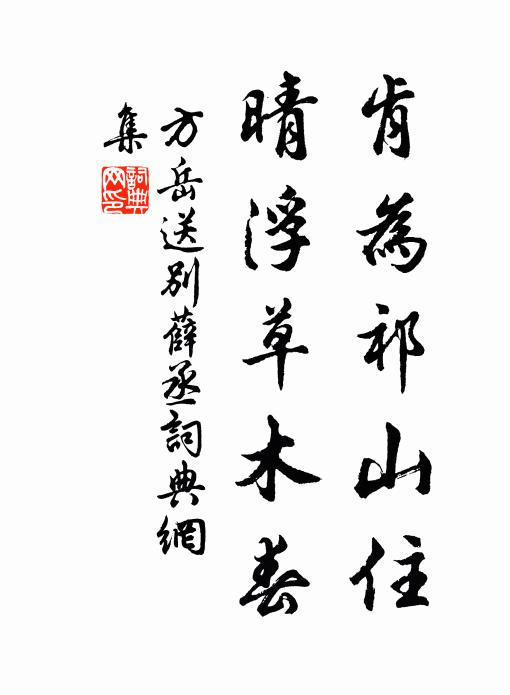 肯為祁山住
晴浮草木春
方岳送別薛丞詞典網
集
詞典网印